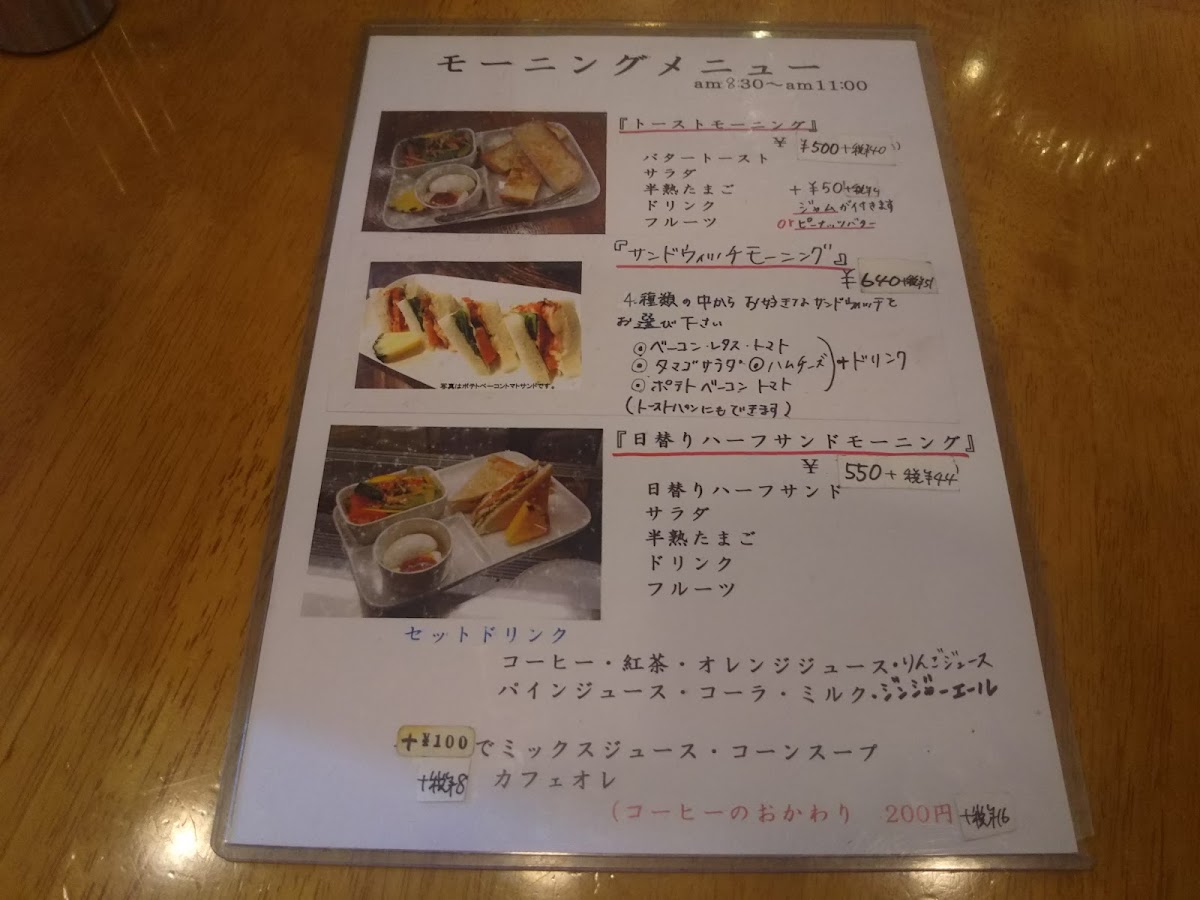 モーニングメニュー
am8:30～am11:00
『トーストモーニング』
￥ ￥500+税￥40
バタートースト
サラダ
半熟たまご +￥50+税￥4
ドリンク ジャムが付きます
フルーツ orピーナッツバター
『サンドウィッチモーニング』
￥640+税￥51
4種類の中からお好きなサンドウィッチと
お選び下さい
◎ベーコン・レタス・トマト
◎タマゴサラダ ◎ハムチーズ +ドリンク
◎ポテトベーコントマト
(トーストパンにもできます)
写真はポテトベーコントマトサンドです。
『日替りハーフサンドモーニング』
￥ 550+税￥44
日替りハーフサンド
サラダ
半熟たまご
ドリンク
フルーツ
セットドリンク
コーヒー・紅茶・オレンジジュース・りんごジュース
パインジュース・コーラ・ミルク・ジンジャーエール
+￥100でミックスジュース・コーンスープ
+税￥8 カフェオレ
(コーヒーのおかわり 200円+税￥16